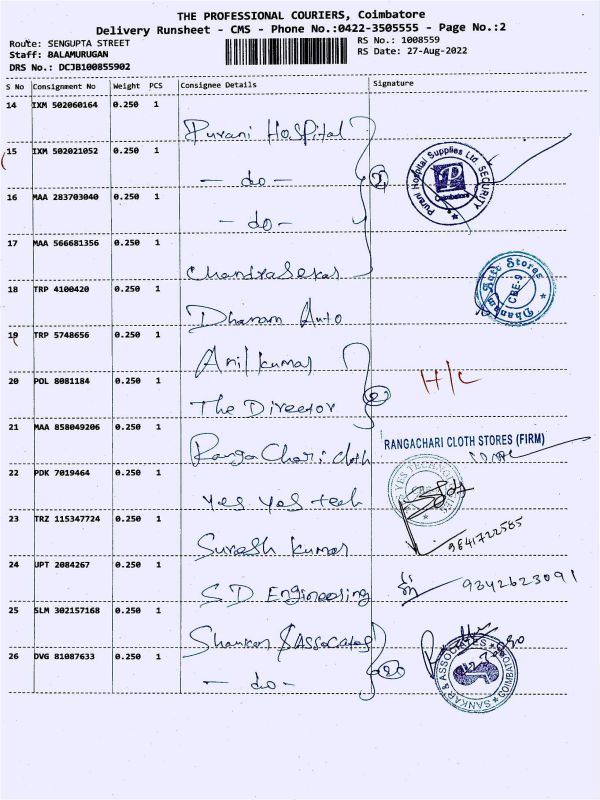 THE PROFESSIONAL COURIERS, Coimbatore
Delivery Runsheet - CMS - Phone No.:0422-3505555 - Page No.:2
Route: SENGUPTA STREET
RS No.: 1008559
Staff: BALAMURUGAN
RS Date: 27-Aug-2022
DRS No.: DCJB100855902
S No Consignment No Weight PCS Consignee Details Signature
14 IXM 502060164 0.250 1 Purani Hospital
15 IXM 502021052 0.250 1 - do -
Purani Hospital Supplies Ltd. SECURITY
P
Coimbatore
16 MAA 283703040 0.250 1 - do -
17 MAA 566681356 0.250 1 Chandrasekar
18 TRP 4100420 0.250 1 Dhanam Auto
Dhanam Auto Stores
CBE-9
19 TRP 5748656 0.250 1 Anilkumar
20 POL 8081184 0.250 1 The Director
H/C
21 MAA 858049206 0.250 1 RangaChari cloth
RANGACHARI CLOTH STORES (FIRM)
22 PDK 7019464 0.250 1 Yes Yes tech
23 TRZ 115347724 0.250 1 Suresh Kumar
9841722585
24 UPT 2084267 0.250 1 S.D Engineering
9342623091
25 SLM 302157168 0.250 1 Shankar & Assocates
26 DVG 81087633 0.250 1 - do -
SANKAR & ASSOCIATES
COIMBATORE